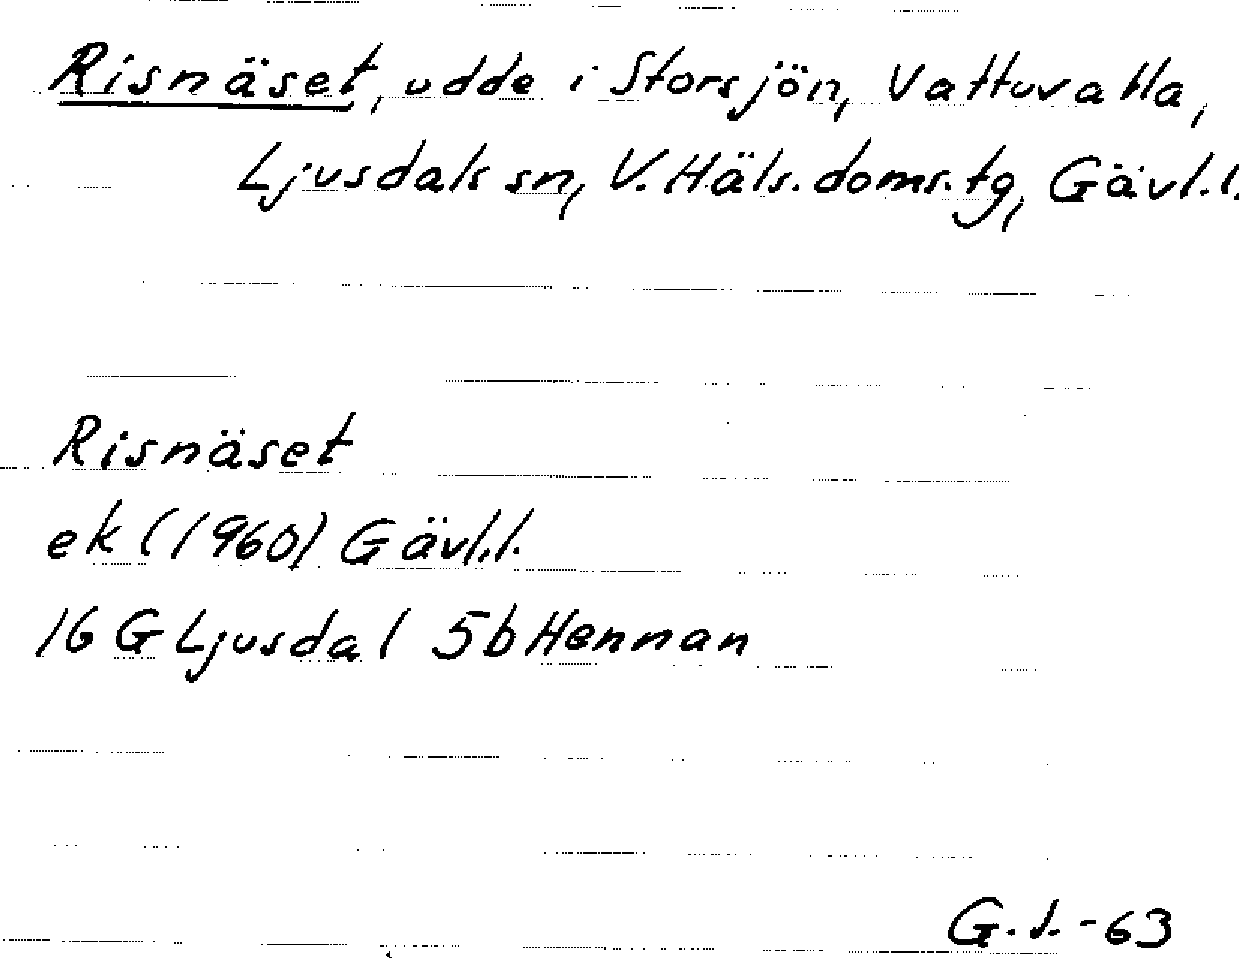 Risnäset, udde i Storsjön,
Ljusdals sn, V. Häls. doms. tg, Gävl.l.
Risnäset
ek (1960) Gävl.l.
16 G Ljusdal 5b Hennan
G.J.-63